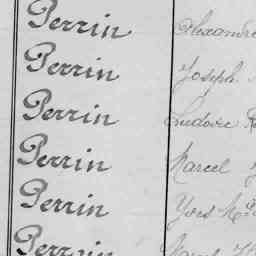 Perrin Alexandre
Perrin Joseph
Perrin Ludovic
Perrin Marcel
Perrin Yves M
Perrin